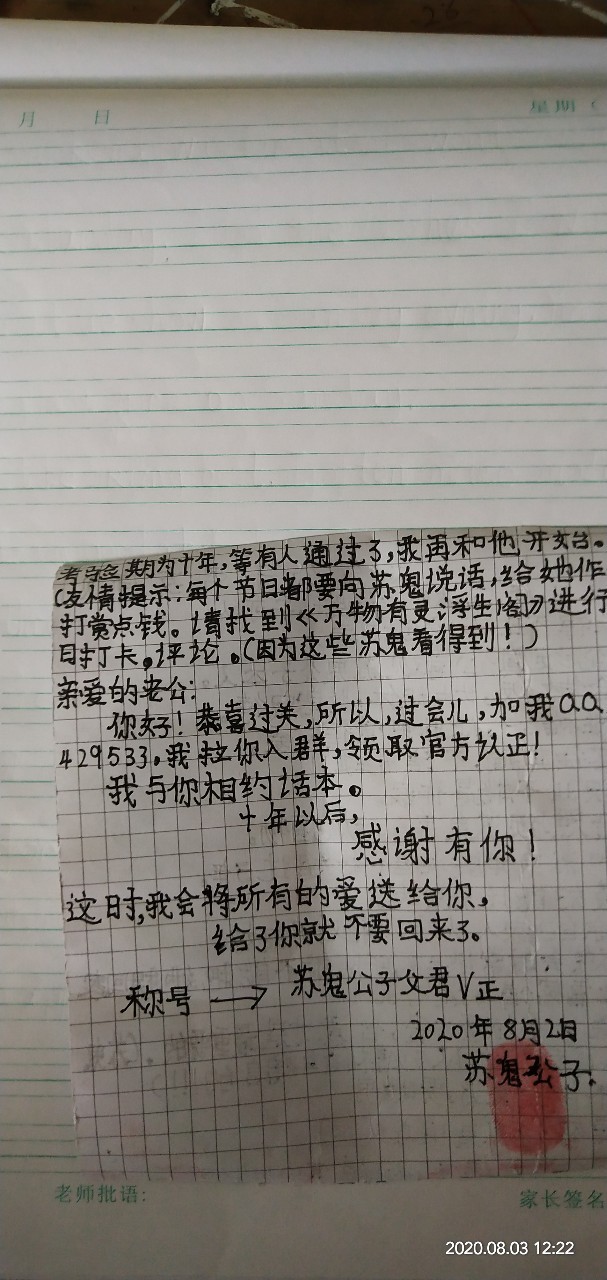 月 日 星期（
考验期为十年，等有人通过了，我再和他开始。
（友情提示：每个节日都要向苏鬼说话，给她作
打赏点钱。请找到《万物有灵浮生阁》进行
日打卡。评论。（因为这些苏鬼看得到！）
亲爱的老公：
你好！恭喜过关，所以，过会儿，加我QQ
429533。我拉你入群，领取官方认正！
我与你相约话本。
十年以后，
感谢有你！
这时，我会将所有的爱送给你。
给了你就不要回来了。
称号 → 苏鬼公子父君V正
2020年8月2日
苏鬼公子.
老师批语: 家长签名
2020.08.03 12:22